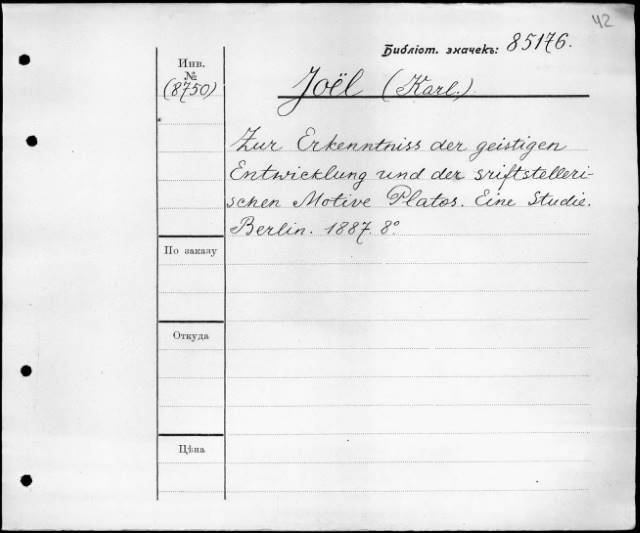 42
Библіот. значекъ: 85176.
Инв.
№
(8750)
Joël (Karl.)
Zur Erkenntniss der geistigen
Entwicklung und der sriftstelleri-
schen Motive Platos. Eine Studie.
Berlin. 1887. 8°.
По заказу
Откуда
Цѣна